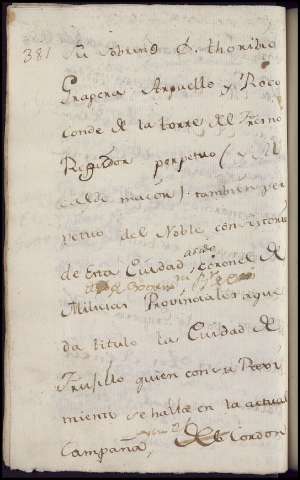 381 Su Sobrino D. thoribio
Grapera Arguello y Roco
conde de la torre del Fresno
Regidor perpetuo (y Al
calde maior) tambien per
petuo del Noble consistorio
de esta Ciudad, Coronel de
Milicias Provinciales a que
da titulo la Ciudad de
Trugillo quien con su Rexi
miento se halla en la actual
Campaña, de Cordon